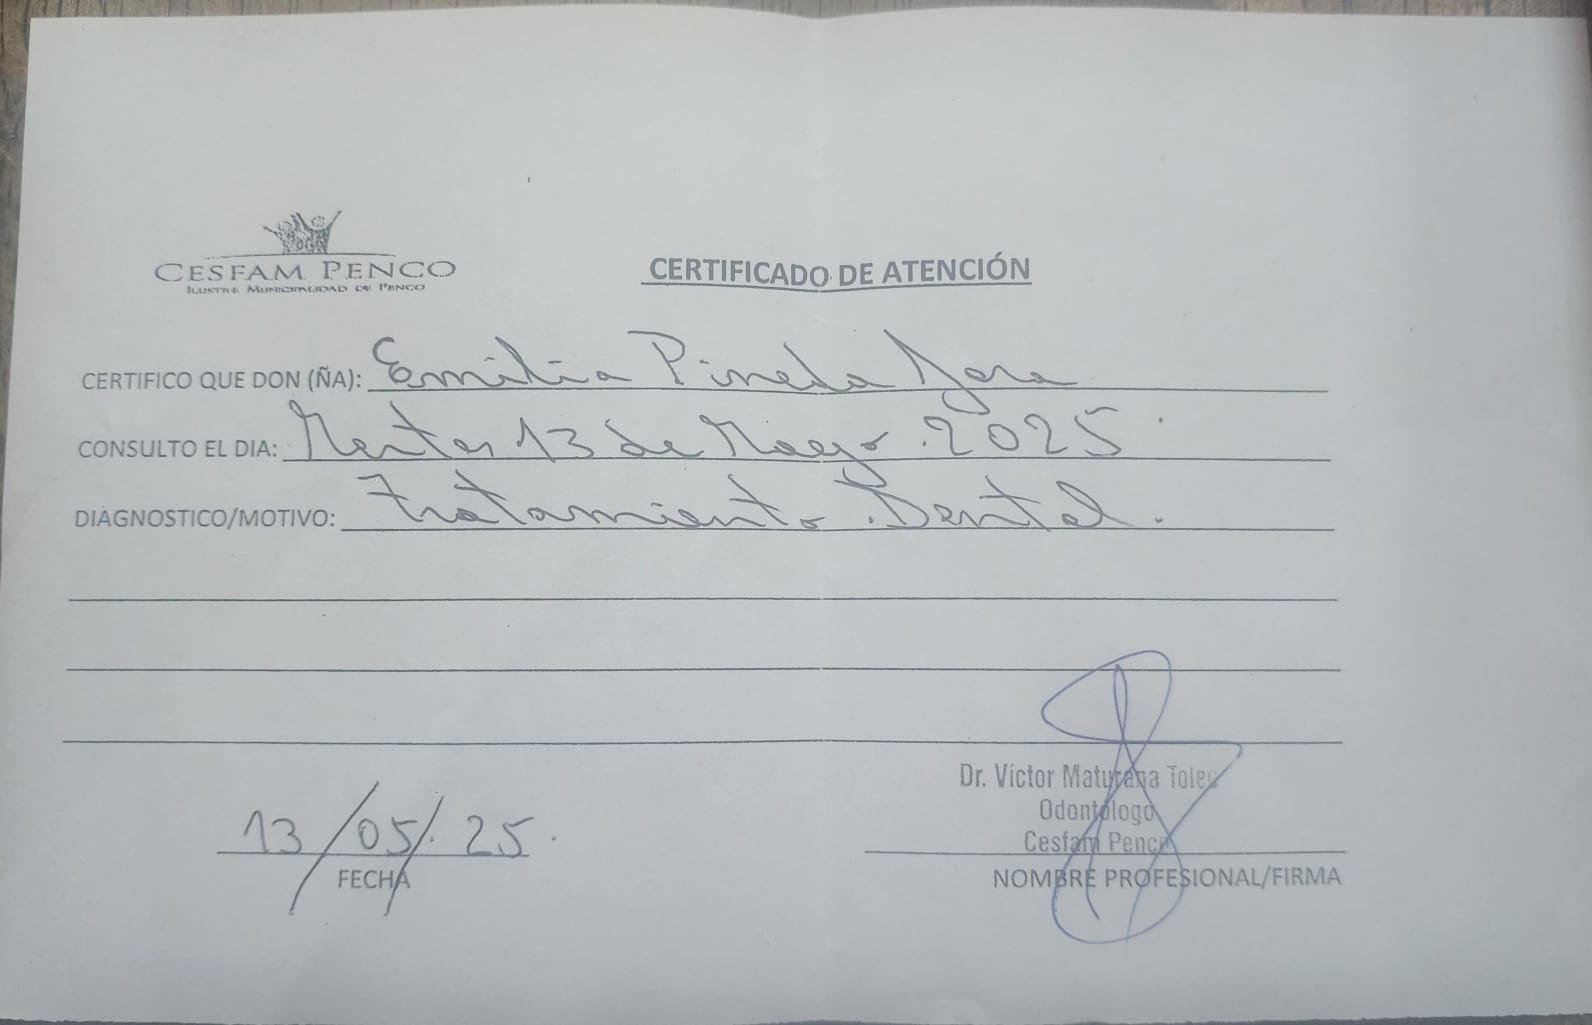 CESFAM PENCO
ILUSTRE MUNICIPALIDAD DE PENCO
CERTIFICADO DE ATENCIÓN
CERTIFICO QUE DON (ÑA): Emilia Pineda Jara
CONSULTO EL DIA: Martes 13 de Mayo 2025
DIAGNOSTICO/MOTIVO: Tratamiento Dental.
13/05/25
FECHA
Dr. Víctor Maturana Toled
Odontólogo
Cesfam Penco
NOMBRE PROFESIONAL/FIRMA